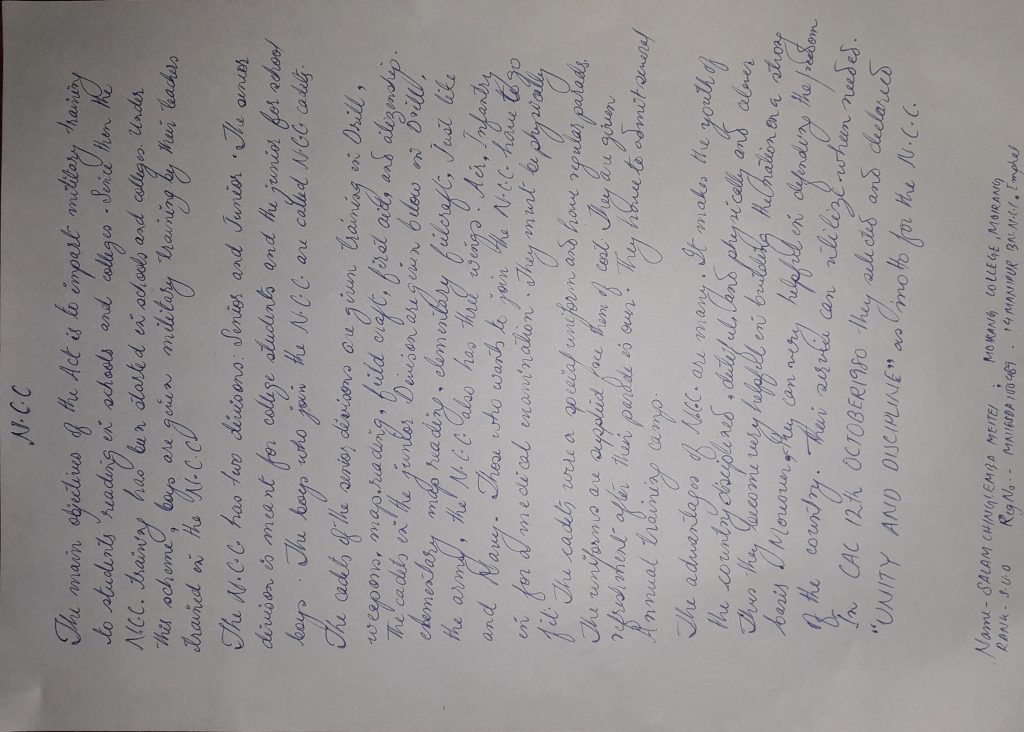 N.C.C
The main objectives of the Act is to impart military training
to students reading in schools and colleges. Since then the
N.C.C. training has been started in schools and colleges. Under
this scheme, boys are given military training by their teachers
trained in the N.C.C.
The N.C.C. has two divisions: Senior and Junior. The senior
division is meant for college students and the junior for school
boys. The boys who join the N.C.C. are called N.C.C cadets.
The cadets of the senior divisions are given training in Drill,
weapons, map reading, field craft, first aids, and
The cadets in the junior Division are given below in Drill,
elementary map reading, elementary filecraft, Just like
the army, the N.C.C also has three wings. Air, Infantry
and Navy. Those who wants to join the N.C.C. have to go
in for a medical examination. They must be physically
fit. The cadets wear a special uniform and have regular parads.
The uniforms are supplied free of cost They are given
refreshment after their parade is our. They have to
Annual training camp.
The advantages of N.C.C. are many. It makes the youth of
the country disciplined, dutiful and physically and
Thus they become very helpful in building the Nation on a strong
basis. Moreover, they can very helpful in defending the freedom
Of the country. Their service can utilize wheen needed.
In CAC 12th OCTOBER 1980 they selected and declared
"UNITY AND DISCIPLINE" as motto for the N.C.C.
Name- SALAM CHINGLEMBA MEITEI MORANG COLLEGE, MORANG
RANG- S.U.O Reg No--